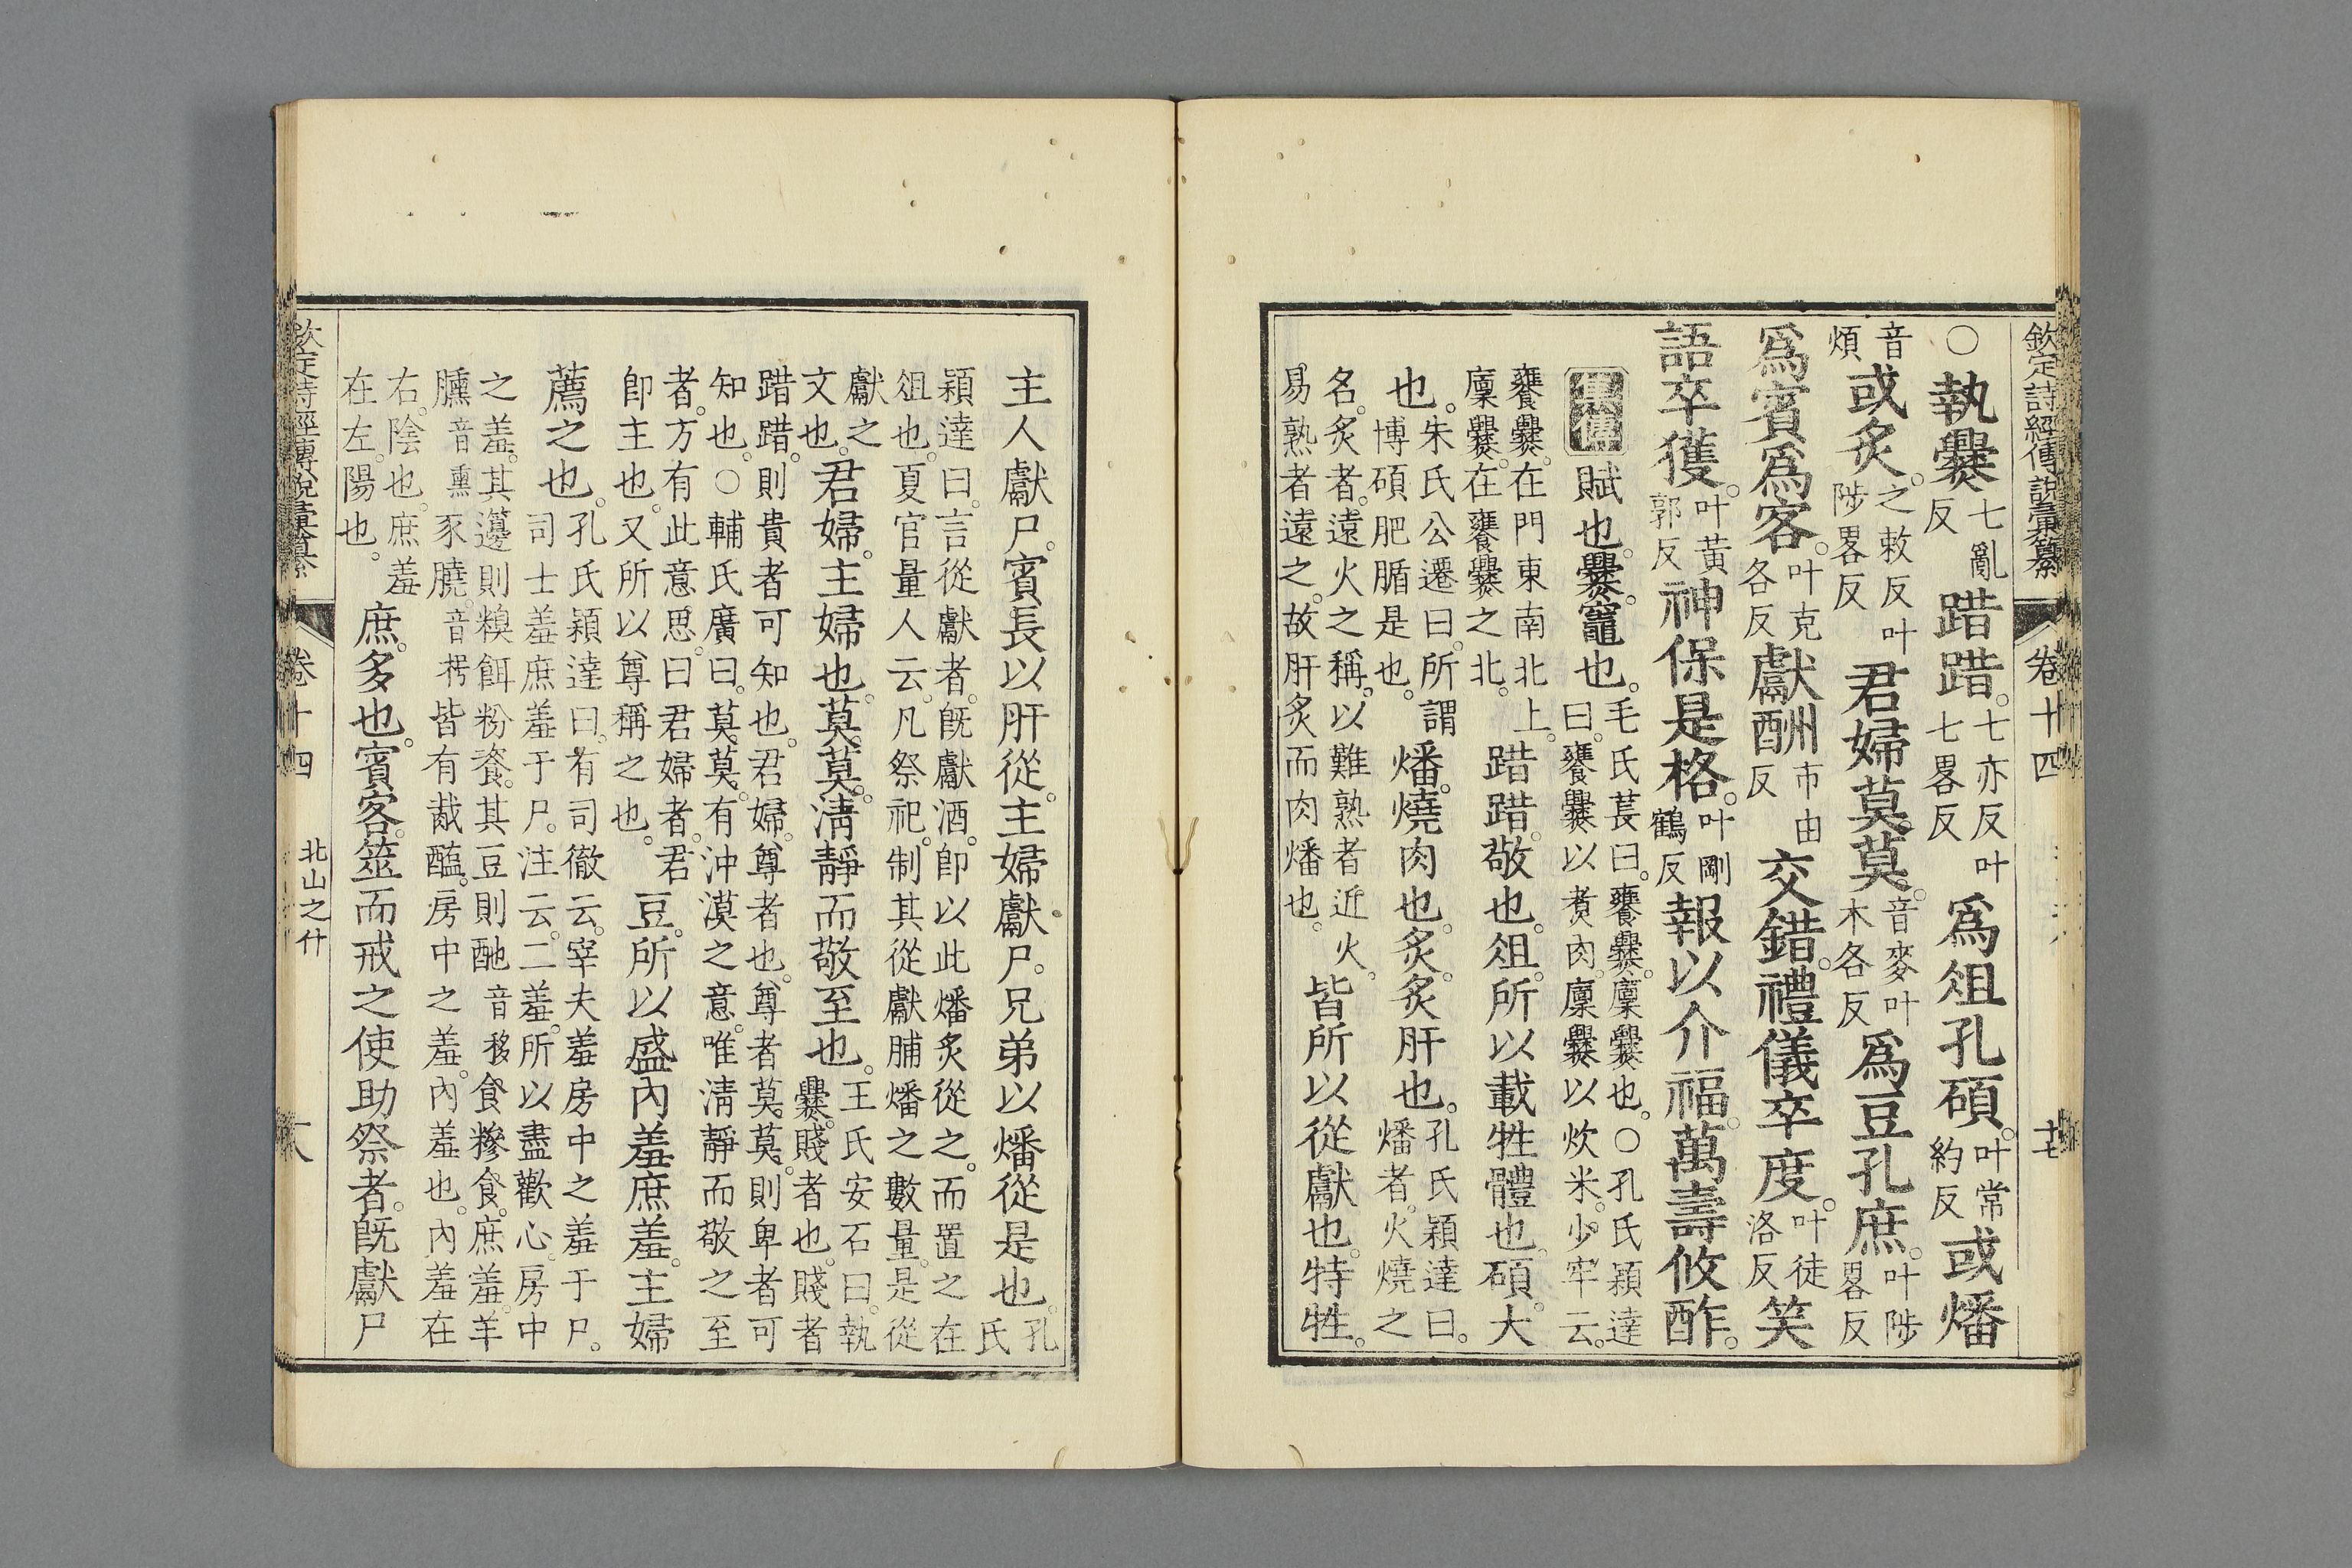 欽定詩經傳說彙纂 卷十四 十七
○執爨七亂反踖踖。七亦反叶七畧反爲俎孔碩。叶常約反或燔
音煩或炙。之敕反叶陟畧反君婦莫莫。音麥叶木各反爲豆孔庶。叶陟畧反
爲賓爲客。叶克各反獻酬市由反交錯。禮儀卒度。叶徒洛反笑
語卒獲。叶黃郭反神保是格。叶剛鶴反報以介福。萬壽攸酢。
集傳賦也。爨。竈也。毛氏萇曰。饔爨。廩爨也。○孔氏穎達曰。饔爨以煑肉。廩爨以炊米。少牢云。
饔爨。在門東南北上。廩爨。在饔爨之北。踖踖。敬也。俎。所以載牲體也。碩。大
也。朱氏公遷曰。所謂博碩肥腯是也。燔。燒肉也。炙。炙肝也。孔氏穎達曰。燔者。火燒之
名。炙者。遠火之稱。以難熟者近火。易熟者遠之。故肝炙而肉燔也。皆所以從獻也。特牲。
主人獻尸。賓長以肝從。主婦獻尸。兄弟以燔從是也。孔氏
穎達曰。言從獻者。旣獻酒。卽以此燔炙從之。而置之在俎也。夏官量人云。凡祭祀。制其從獻脯燔之數量。是從
獻之文也。君婦。主婦也。莫莫。淸靜而敬至也。王氏安石曰。執爨。賤者也。賤者
踖踖。則貴者可知也。君婦。尊者也。尊者莫莫。則卑者可知也。○輔氏廣曰。莫莫。有沖漠之意。唯淸靜而敬之至
者。方有此意思。曰君婦者。君卽主也。又所以尊稱之也。豆。所以盛內羞庶羞。主婦
薦之也。孔氏穎達曰。有司徹云。宰夫羞房中之羞于尸。司士羞庶羞于尸。注云。二羞。所以盡歡心。房中
之羞。其籩則糗餌粉餈。其豆則酏音移食糝食。庶羞。羊臐音熏豕膮。音枵皆有胾醢。房中之羞。內羞也。內羞在
右。陰也。庶羞在左。陽也。庶。多也。賓客。筮而戒之使助祭者。旣獻尸
欽定詩經傳說彙纂 卷十四 北山之什